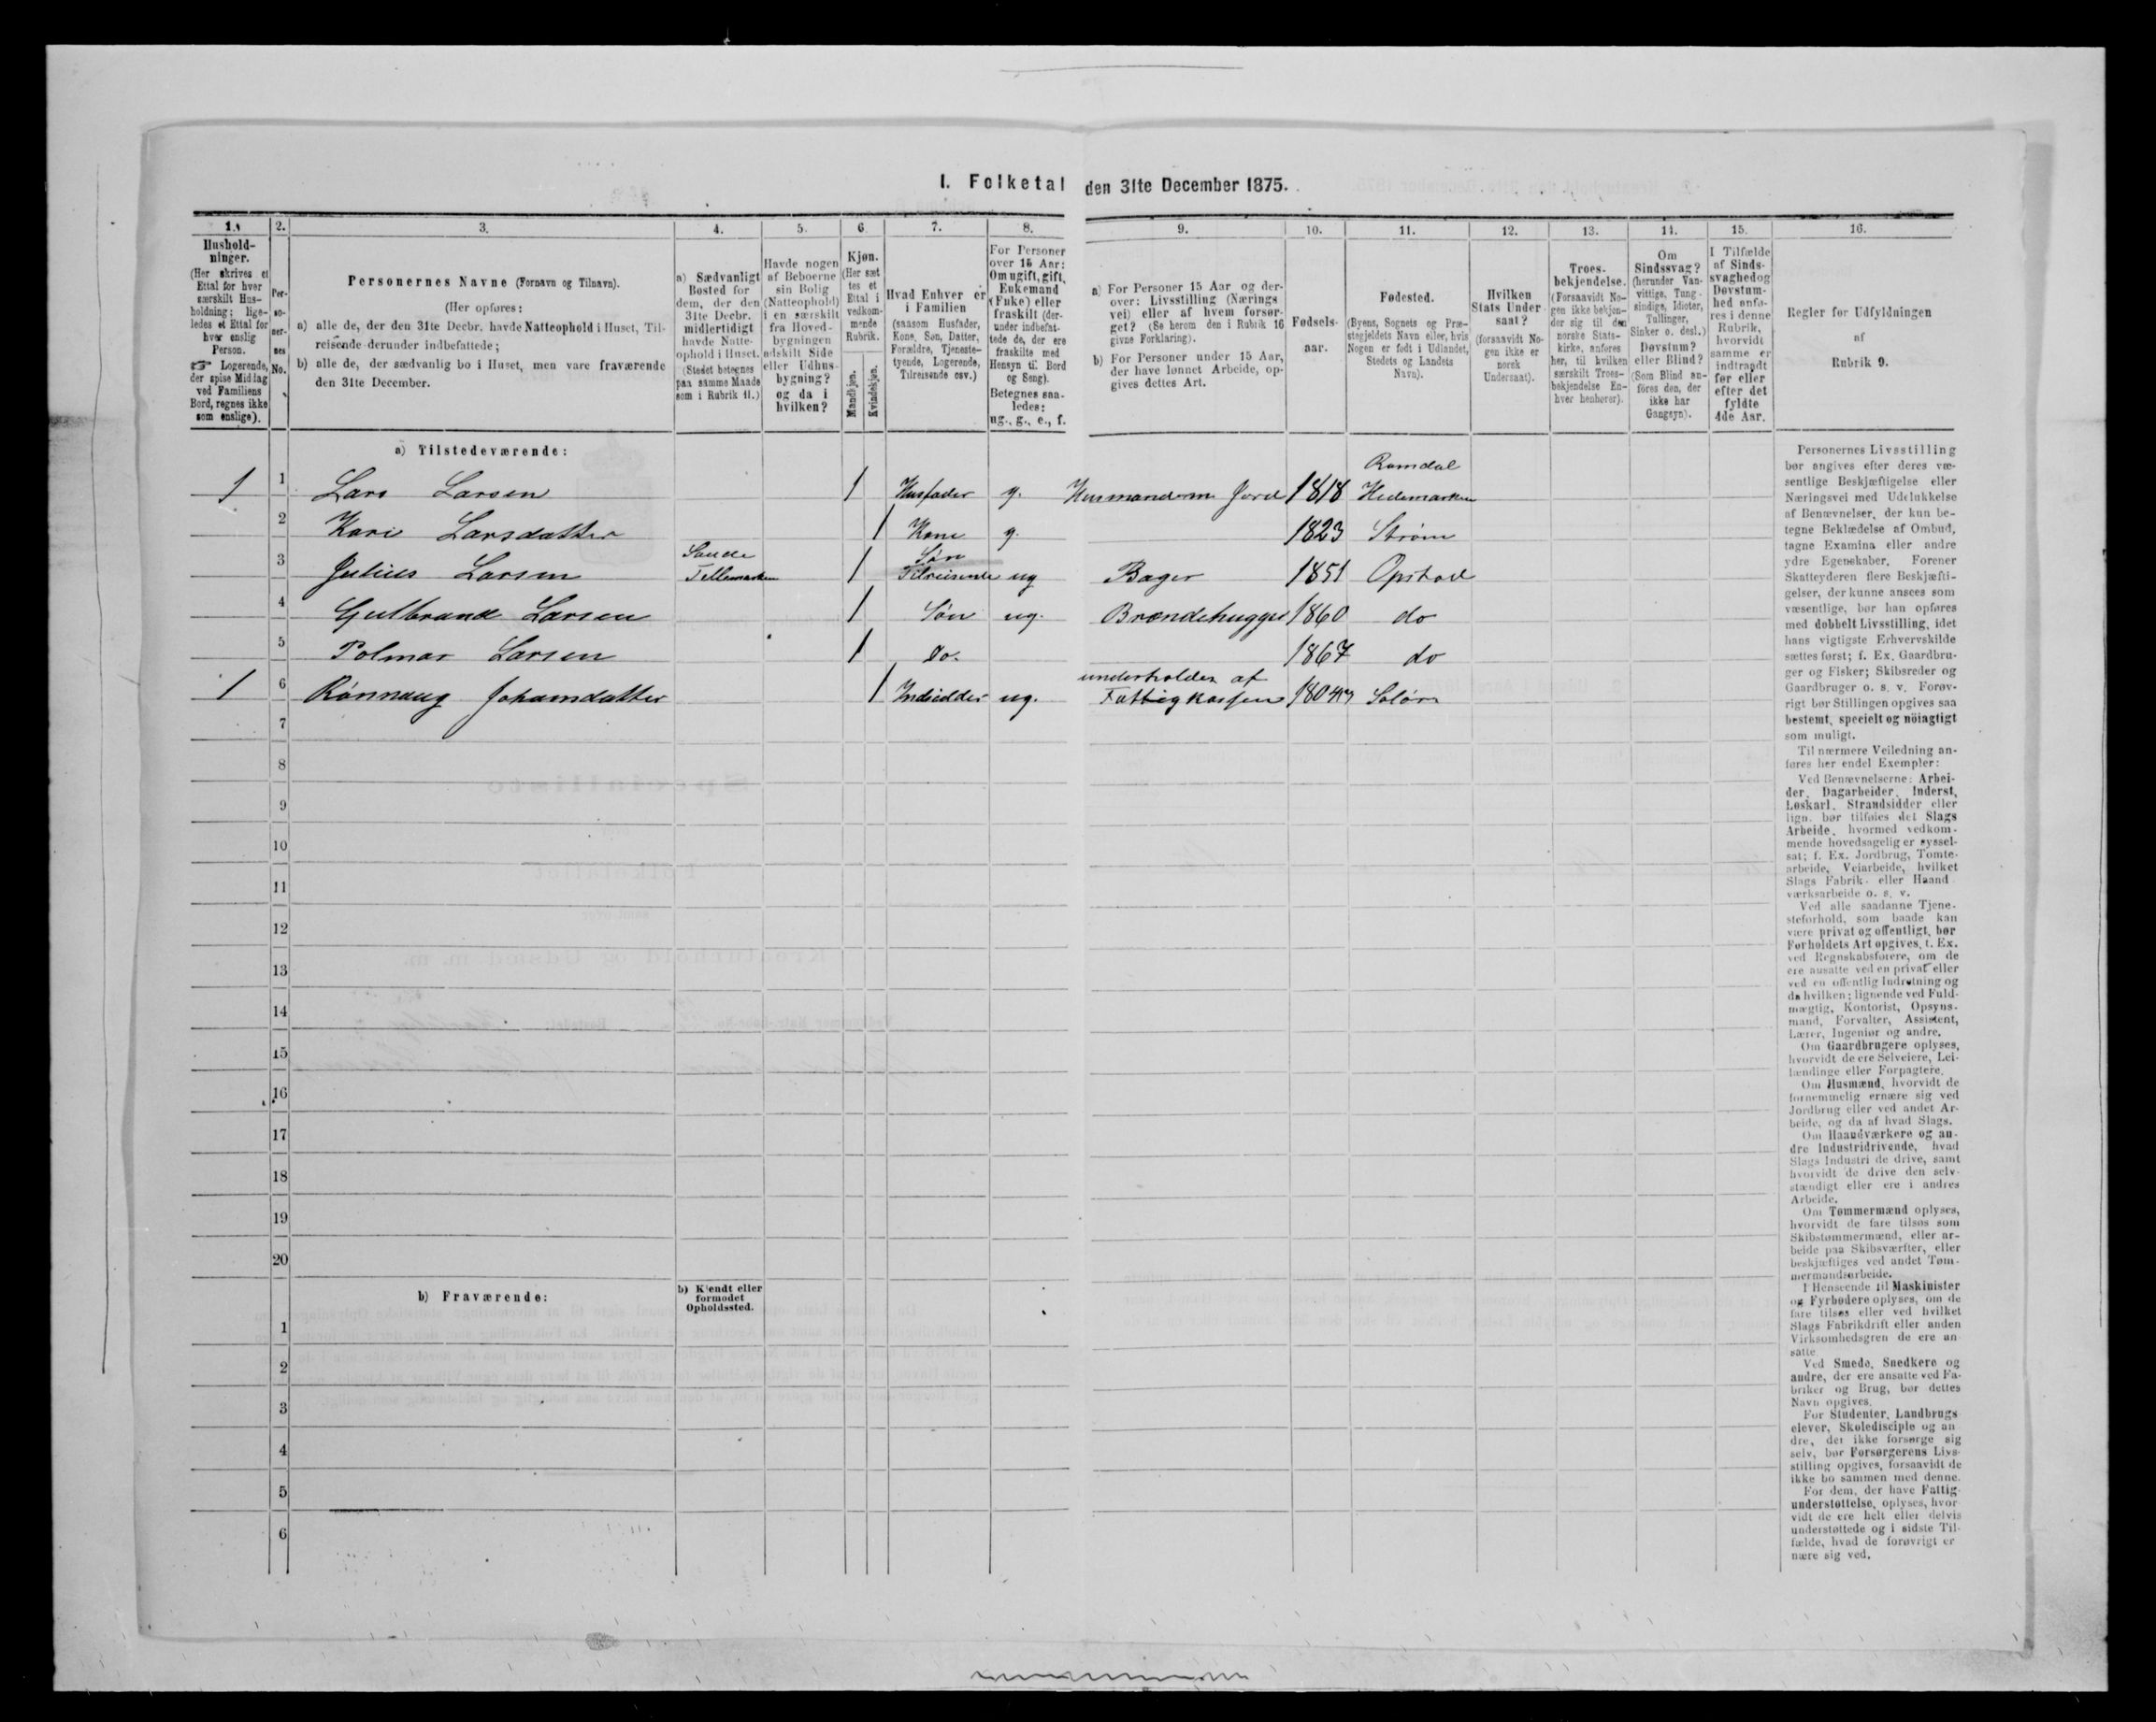 I. Folketal den 31te December 1875.
1. 2. 3. 4. 5. 6 7. 8. 9. 10. 11. 12. 13. 14. 15. 16.
Hushold-
ninger.
(Her skrives et
Ettal for hver
særskilt Hus-
holdning; lige-
ledes et Ettal for
hver enslig
Person.
☞ Logerende,
der spise Middag
ved Familiens
Bord, regnes ikke
som enslige).
Per-
so-
ner-
nes
No.
Personernes Navne (Fornavn og Tilnavn).
(Her opføres:
a) alle de, der den 31te Decbr. havde Natteophold i Huset, Til-
reisende derunder indbefattede;
b) alle de, der sædvanlig bo i Huset, men vare fraværende
den 31te December.
a) Sædvanligt
Bosted for
dem, der den
31te Decbr.
midlertidigt
havde Natte-
ophold i Huset.
(Stedet betegnes
paa samme Maade
som i Rubrik 11.)
Havde nogen
af Beboerne
sin Bolig
(Natteophold)
i en særskilt
fra Hoved-
bygningen
adskilt Side
eller Udhus-
bygning?
og da i
hvilken?
Kjøn.
(Her sæt
tes et
Ettal i
vedkom-
mende
Rubrik.
Mandkjøn.
Kvindekjøn.
Hvad Enhver er
i Familien
(saasom Husfader,
Kone, Søn, Datter,
Forældre, Tjeneste-
tyende, Logerende,
Tilreisende osv.)
For Personer
over 15 Aar:
Om ugift, gift,
Enkemand
(Enke) eller
fraskilt (der-
under indbefat-
tede de, der ere
fraskilte med
Hensyn til Bord
og Seng).
Betegnes saa-
ledes:
ug., g., e., f.
a) For Personer 15 Aar og der-
over: Livsstilling (Nærings
vei) eller af hvem forsør-
get? (Se herom den i Rubrik 16
givne Forklaring).
b) For Personer under 15 Aar,
der have lønnet Arbeide, op-
gives dettes Art.
Fødsels-
aar.
Fødested.
(Byens, Sognets og Præ-
stegjeldets Navn eller, hvis
Nogen er født i Udlandet,
Stedets og Landets
Navn).
Hvilken
Stats Under
saat?
(forsaavidt No-
gen ikke er
norsk
Undersaat).
Troes-
bekjendelse.
(Forsaavidt No-
gen ikke bekjen-
der sig til den
norske Stats-
kirke, anføres
her, til hvilken
særskilt Troes-
bekjendelse En-
hver henhører).
Om
Sindssvag?
(herunder Van-
vittige, Tung-
sindige, Idioter,
Tullinger,
Sinker o. desl.)
Døvstum?
eller Blind?
(Som Blind an-
føres den, der
ikke har
Gangsyn).
I Tilfælde
af Sinds-
svaghed og
Døvstum-
hed anfø-
res i denne
Rubrik,
hvorvidt
samme er
indtraadt
før eller
efter det
fyldte
4de Aar.
Regler for Udfyldningen
af
Rubrik 9.
a) Tilstedeværende:
Romdal
1 1 Lars Larsen 1 Husfader g. Husmand m Jord 1818 Hedemarken
2 Kari Larsdatter 1 Kone g. 1823 Strøm
Sande Søn
3 Julius Larsen Tellemarken 1 Tilreisende ug Bager 1851 Opstad
4 Gulbrand Larsen 1 Søn ug. Brændehugger 1860 do
5 Polmar Larsen 1 Do. 1867 do
underholdes af
1 6 Rønnaug Johansdatter 1 ug. Fattigkassen Solør
7
8
9
10
11
12
13
14
15
16
17
18
19
20
b) Fraværende:
b) Kjendt eller
formodet
Opholdssted.
1
2
3
4
5
6
Personernes Livsstilling
bør angives efter deres væ-
sentlige Beskjæftigelse eller
Næringsvei med Udelukkelse
af Benævnelser, der kun be-
tegne Beklædelse af Ombud,
tagne Examina eller andre
ydre Egenskaber. Forener
Skatteyderen flere Beskjæfti-
gelser, der kunne ansees som
væsentlige, bør han opføres
med dobbelt Livsstilling, idet
hans vigtigste Erhvervskilde
sættes først; f. Ex. Gaardbru-
ger og Fisker; Skibsreder og
Gaardbruger o. s. v. Forøv-
rigt bør Stillingen opgives saa
bestemt, specielt og nöiagtigt
som muligt.
Til nærmere Veiledning an-
føres her endel Exempler:
Ved Benævnelserne: Arbei-
der, Dagarbeider, Inderst,
Løskarl, Strandsidder eller
lign. bør tilføies det Slags
Arbeide, hvormed vedkom-
mende hovedsagelig er syssel-
sat; f. Ex. Jordbrug, Tomte-
arbeide, Veiarbeide, hvilket
Slags Fabrik- eller Haand
værksarbeide o. s. v.
Ved alle saadanne Tjene-
steforhold, som baade kan
være privat og offentligt, bør
Forholdets Art opgives, t. Ex.
ved Regnskabsførere, om de
ere ansatte ved en privat eller
ved en offentlig Indretning og
da hvilken; lignende ved Fuld-
mægtig, Kontorist, Opsyns-
mand, Forvalter, Assistent,
Lærer, Ingeniør og andre.
Om Gaardbrugere oplyses,
hvorvidt de ere Selveiere, Lei-
lændinge eller Forpagtere.
Om Husmænd, hvorvidt de
fornemmelig ernære sig ved
Jordbrug eller ved andet Ar-
beide, og da af hvad Slags.
Om Haandværkere og an-
dre Industridrivende, hvad
Slags Industri de drive, samt
hvorvidt de drive den selv-
stændigt eller ere i andres
Arbeide.
Om Tømmermænd oplyses,
hvorvidt de fare tilsøs som
Skibstømmermænd, eller ar-
beide paa Skibsværfter, eller
beskjæftiges ved andet Tøm-
mermandsarbeide.
I Henseende til Maskinister
og Fyrbødere oplyses, om de
fare tilsøs eller ved hvilket
Slags Fabrikdrift eller anden
Virksomhedsgren de ere an
satte.
Ved Smede, Snedkere og
andre, der ere ansatte ved Fa-
briker og Brug, bør dettes
Navn opgives.
For Studenter, Landbrugs
elever, Skoledisciple og an
dre, der ikke forsørge sig
selv, bør Forsørgerens Livs-
stilling opgives, forsaavidt de
ikke bo sammen med denne.
For dem, der have Fattig
understøttelse, oplyses, hvor
vidt de ere helt eller delvis
understøttede og i sidste Til-
fælde, hvad de forøvrigt er
nære sig ved.